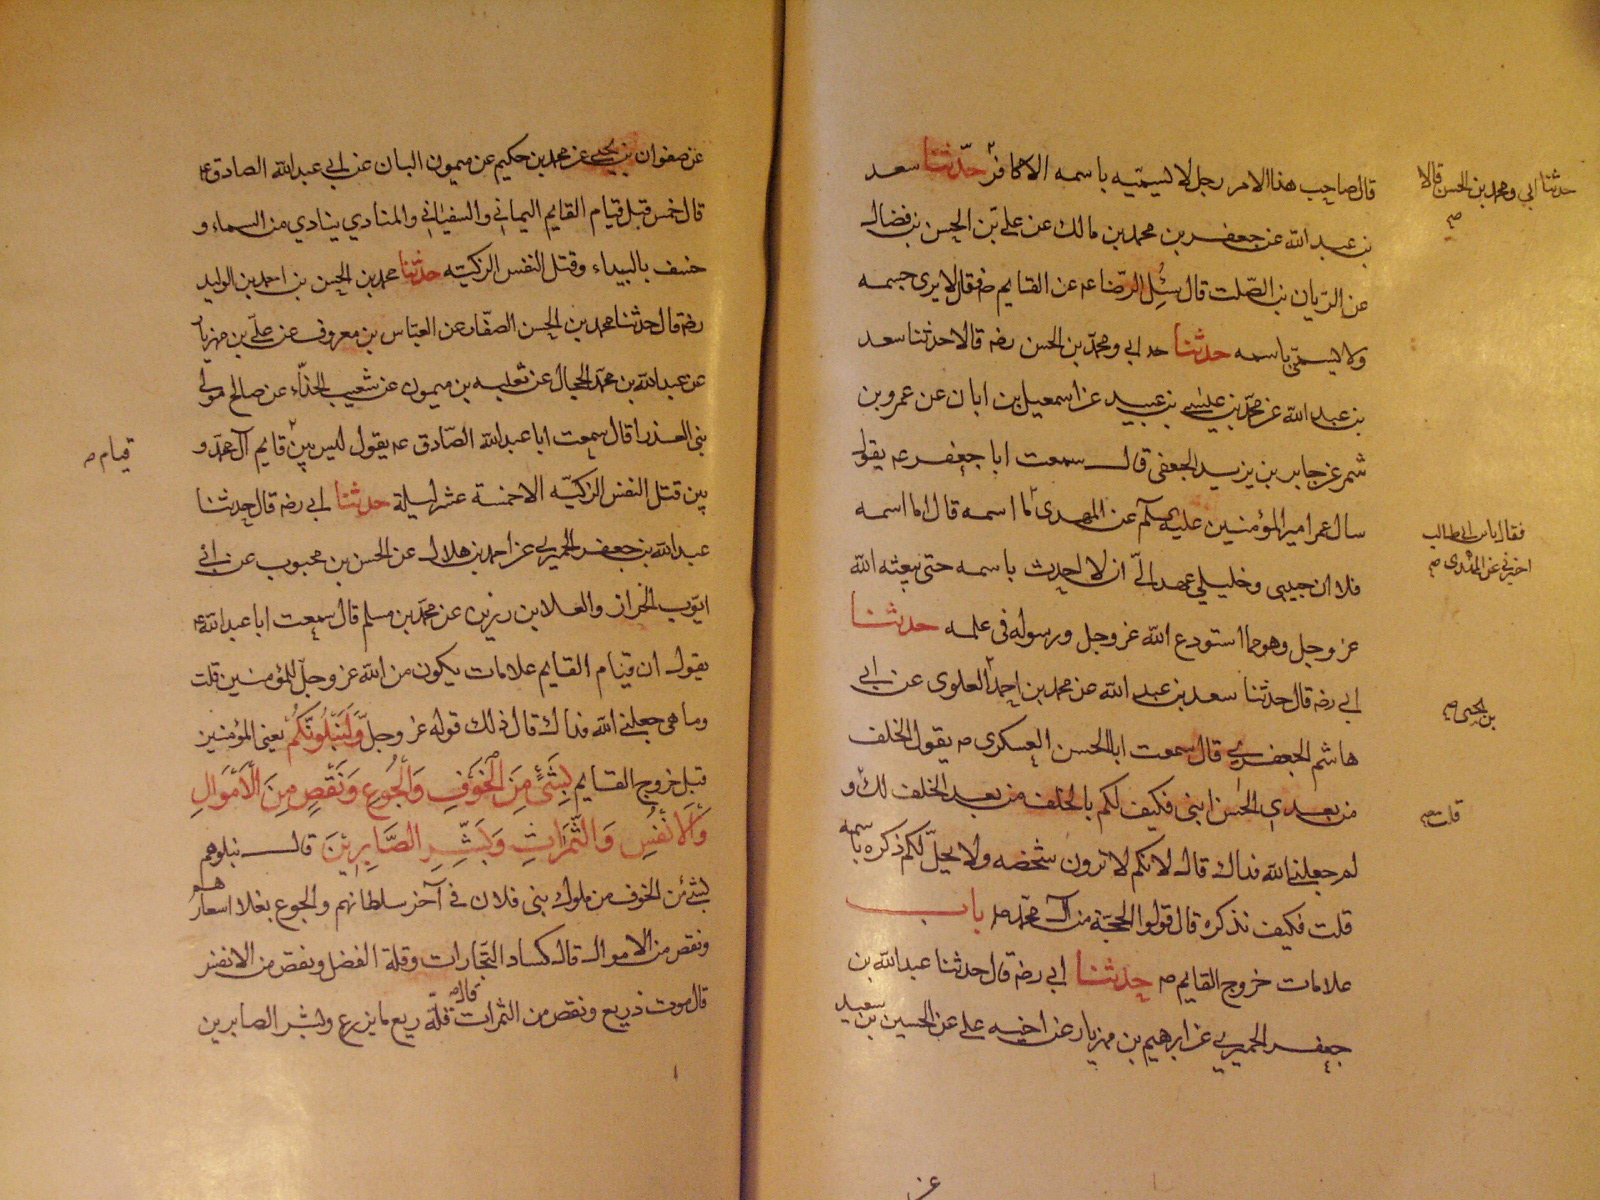 قال صاحب هذا الامر رجل لا يسميه باسمه الا كافر حدثنا سعد
بن عبد الله عن جعفر بن محمد بن مالك عن علي بن الحسن بن فضال
عن الريان بن الصلت قال سئل الرضا عه عن القايم فقال لا يرى جسمه
ولا يسمى باسمه حدثنا ابي ومحمد بن الحسن رضه قالا حدثنا سعد
بن عبد الله عن محمد بن عيسى بن عبيد عن اسمعيل بن ابان عن عمرو بن
شمر عن جابر بن يزيد الجعفى قال سمعت ابا جعفر عه يقول
سال عمر امير المؤمنين عليه عن المهدى ما اسمه قال اما اسمه
فلا ان حبيبى وخليلي عهد الي ان لا احدث باسمه حتى يبعثه الله
عز وجل وهو مما استودع الله عز وجل ورسوله فى علمه حدثنا
ابي رضه قال حدثنا سعد بن عبد الله عن محمد بن احمد العلوى عن ابي
هاشم الجعفرى قال سمعت ابا الحسن العسكرى يقول الخلف
من بعدى الحسن ابنى فكيف لكم بالخلف من بعد الخلف و
لم جعلني الله فداك قال لانكم لا ترون شخصه ولا يحل لكم ذكره باسمه
قلت فكيف نذكره قال قولوا الحجة من ال محمد باب
علامات خروج القايم حدثنا ابي رضه قال حدثنا عبد الله بن
جعفر الحميرى عن ابرهيم بن مهزيار عن اخيه على عن الحسين بن سعيد
عن
حدثنا ابي ومحمد بن الحسن قالا
فقال يابن ابى طالب
اخبرنى عن المهدى
بن يحيى
قلت
عن صفوان بن يحيى عن محمد بن حكيم عن ميمون البان عن ابي عبد الله الصادق
قال خمس قبل قيام القايم اليماني والسفياني والمنادي ينادي من السماء و
خسف بالبيداء وقتل النفس الزكيه حدثنا محمد بن الحسن بن احمد بن الوليد
رضه قال حدثنا محمد بن الحسن الصفار عن العباس بن معروف عن علي بن مهزيار
عن عبد الله بن محمد الحجال عن ثعلبه بن ميمون عن شعيب الحذاء عن صالح مولى
بنى العذرا قال سمعت ابا عبد الله الصادق عه يقول ليس بين قايم آل محمد و
بين قتل النفس الزكيه الا خمسة عشر ليلة حدثنا ابي رضه قال حدثنا
عبد الله بن جعفر الحميرى عن احمد بن هلال عن الحسن بن محبوب عن ابي
ايوب الخزاز والعلا بن رزين عن محمد بن مسلم قال سمعت ابا عبد الله
يقول ان قيام القايم علامات يكون من الله عز وجل للمؤمنين قلت
وما هى جعلني الله فداك قال ذلك قوله عز وجل وَلَنَبْلُوَنَّكُمْ يعنى المؤمنين
قبل خروج القايم بِشَيْءٍ مِنَ الْخَوْفِ وَالْجُوعِ وَنَقْصٍ مِنَ الْأَمْوَالِ
وَالْأَنْفُسِ وَالثَّمَرَاتِ وَبَشِّرِ الصَّابِرِينَ قال نبلوهم
بشئ من الخوف من ملوك بنى فلان في آخر سلطانهم والجوع بغلا اسعارهم
ونقص من الاموال قال كساد التجارات وقلة الفضل ونقص من الانفس
قال موت ذريع ونقص من الثمرات قال قلة ريع ما يزرع وبشر الصابرين
قيام